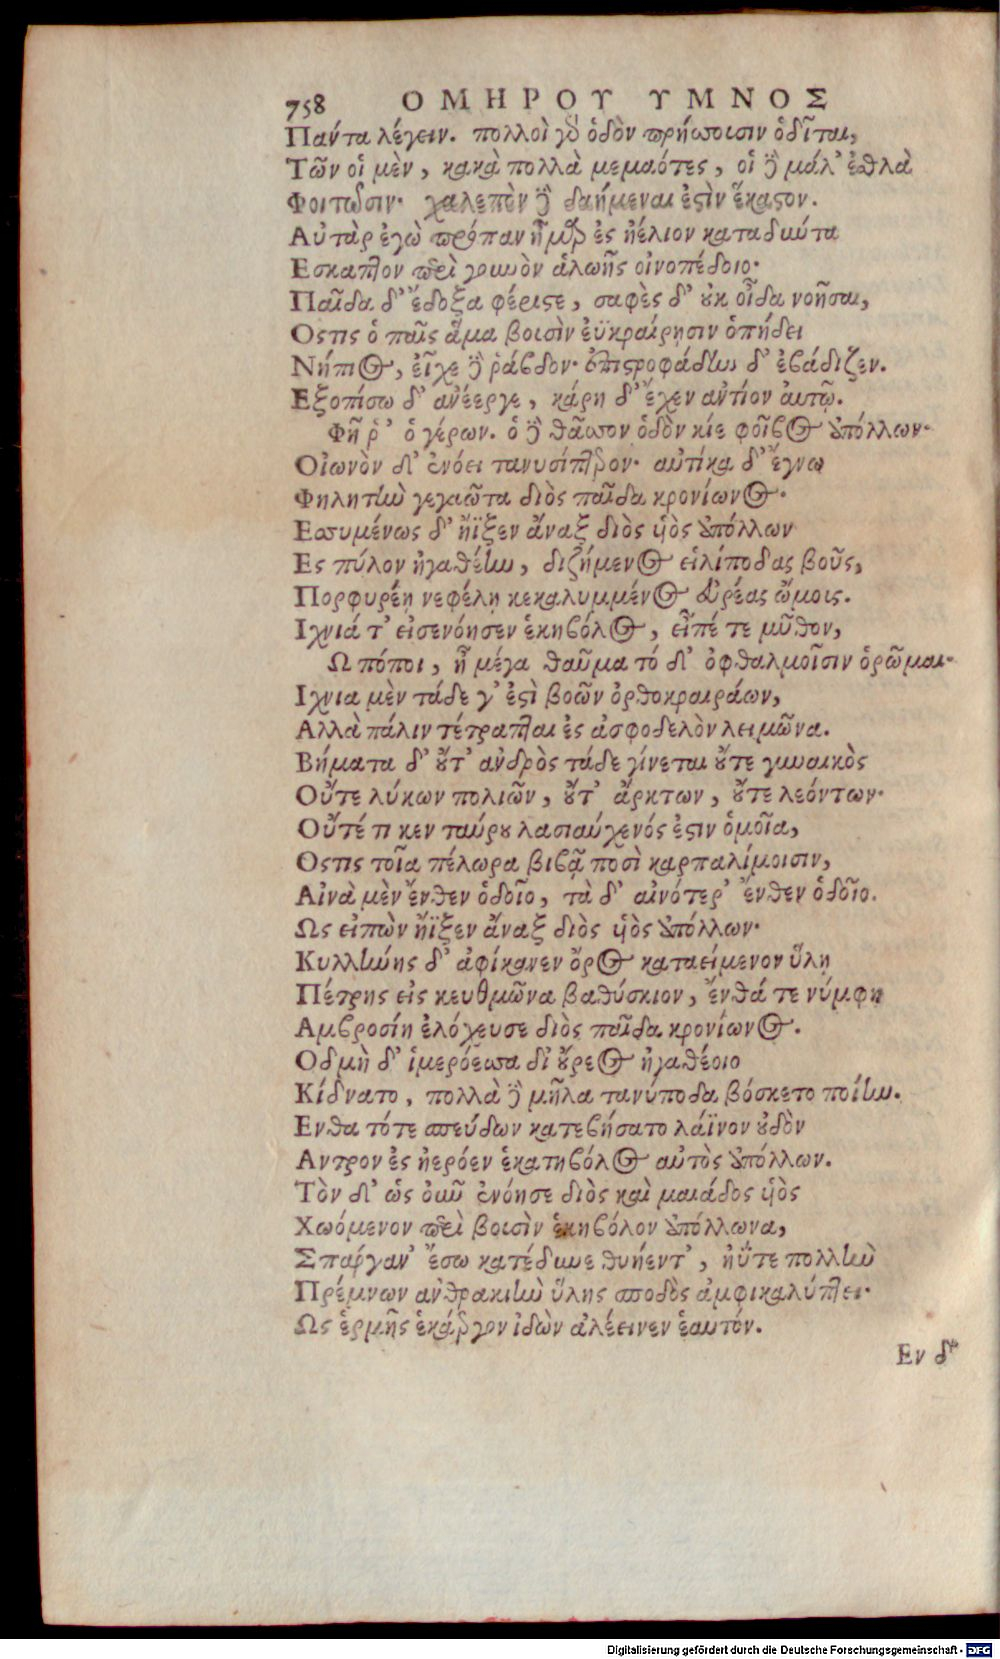 758 ΟΜΗΡΟΥ ΥΜΝΟΣ
Πάντα λέγειν. πολλοὶ γὰρ ὁδὸν πρήσσουσιν ὁδῖται,
Τῶν οἱ μὲν, κακὰ πολλὰ μεμαότες, οἱ δὲ μάλ' ἐσθλὰ
Φοιτῶσιν· χαλεπὸν δὲ δαήμεναι ἐστὶν ἕκαστον.
Αὐτὰρ ἐγὼ πρόπαν ἦμαρ ἐς ἠέλιον καταδύντα
Εσκαπτον περὶ γουνὸν ἀλωῆς οἰνοπέδοιο·
Παῖδα δ' ἔδοξα φέριστε, σαφὲς δ' οὐκ οἶδα νοῆσαι,
Οστις ὁ παῖς ἅμα βουσὶν ἐϋκραίρῃσιν ὀπήδει
Νήπιος, εἶχε δὲ ῥάβδον· ἐπιστροφάδην δ' ἐβάδιζεν.
Εξοπίσω δ' ἀνέεργε, κάρη δ' ἔχεν ἀντίον αὐτῷ.
Φῆ ῥ' ὁ γέρων. ὁ δὲ θᾶσσον ὁδὸν κίε φοῖβος ἀπόλλων·
Οἰωνὸν δ' ἐνόει τανυσίπτερον· αὐτίκα δ' ἔγνω
Φηλητὴν γεγαῶτα διὸς παῖδα κρονίωνος.
Εσσυμένως δ' ἤϊξεν ἄναξ διὸς ὑὸς ἀπόλλων
Ες πύλον ἠγαθέην, διζήμενος εἰλίποδας βοῦς,
Πορφυρέῃ νεφέλῃ κεκαλυμμένος εὐρέας ὤμοις.
Ιχνιά τ' εἰσενόησεν ἑκηβόλος, εἶπέ τε μῦθον,
Ω πόποι, ἦ μέγα θαῦμα τό δ' ὀφθαλμοῖσιν ὁρῶμαι·
Ιχνια μὲν τάδε γ' ἐστὶ βοῶν ὀρθοκραιράων,
Αλλὰ πάλιν τέτραπται ἐς ἀσφοδελὸν λειμῶνα.
Βήματα δ' οὔτ' ἀνδρὸς τάδε γίνεται οὔτε γυναικὸς
Οὔτε λύκων πολιῶν, οὔτ' ἄρκτων, οὔτε λεόντων·
Οὔτέ τι κεν ταύρου λασιαύχενός ἐστιν ὁμοῖα,
Οστις τοῖα πέλωρα βιβᾷ ποσὶ καρπαλίμοισιν,
Αἰνὰ μὲν ἔνθεν ὁδοῖο, τὰ δ' αἰνότερ' ἔνθεν ὁδοῖο.
Ως εἰπὼν ἤϊξεν ἄναξ διὸς ὑὸς ἀπόλλων·
Κυλλήνης δ' ἀφίκανεν ὄρος καταείμενον ὕλῃ
Πέτρης εἰς κευθμῶνα βαθύσκιον, ἔνθά τε νύμφη
Αμβροσίη ἐλόχευσε διὸς παῖδα κρονίωνος.
Οδμὴ δ' ἱμερόεσσα δι' οὔρεος ἠγαθέοιο
Κίδνατο, πολλὰ δὲ μῆλα τανύποδα βόσκετο ποίην.
Ενθα τότε σπεύδων κατεβήσατο λάϊνον οὐδὸν
Αντρον ἐς ἠερόεν ἑκατηβόλος αὐτὸς ἀπόλλων.
Τὸν δ' ὡς οὖν ἐνόησε διὸς καὶ μαιάδος ὑὸς
Χωόμενον περὶ βουσὶν ἑκηβόλον ἀπόλλωνα,
Σπάργαν' ἔσω κατέδυνε θυήεντ', ἠΰτε πολλὴν
Πρέμνων ἀνθρακιὴν ὕλης σποδὸς ἀμφικαλύπτει·
Ως ἑρμῆς ἑκάεργον ἰδὼν ἀλέεινεν ἑαυτόν.
Εν δ'
Digitalisierung gefördert durch die Deutsche Forschungsgemeinschaft - DFG